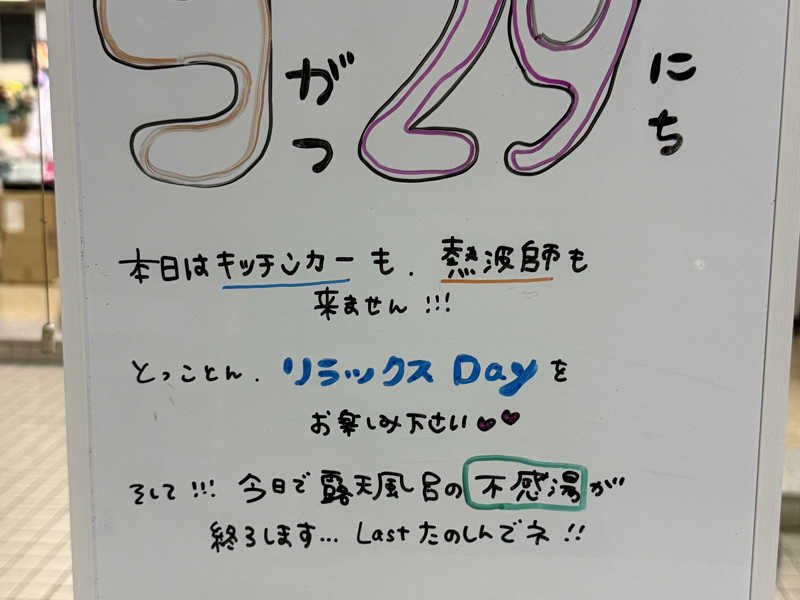 9がつ29にち
本日はキッチンカーも、熱波師も
来ません!!!
とっことん、リラックスDayを
お楽しみ下さい♥♥
そして!!!今日で露天風呂の不感湯が
終ろします... Lastたのしんでネ!!